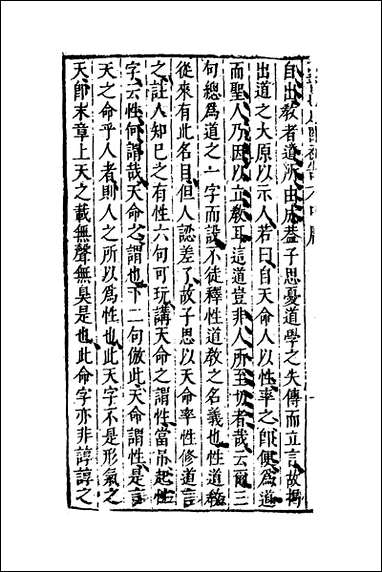 自出教者道所由成蓋子思憂道學之失傳而立言故揭
出道之大原以示人若曰自天命人以性率之即便為道
而聖人乃因以立教耳這道豈非人所至切者哉云爾三
句總為道之一字而設不徒釋性道教之名義也性道教
從來有此名目但人認差了故子思以天命率性修道言
之註人知已之有性六句可玩講天命之謂性當吊起性
字云性何謂哉天命之謂也下二句倣此天命謂性是言
天之命乎人者則人之所以為性也此天字不是形氣之
天即末章上天之載無聲無臭是也此命字亦非諄諄之